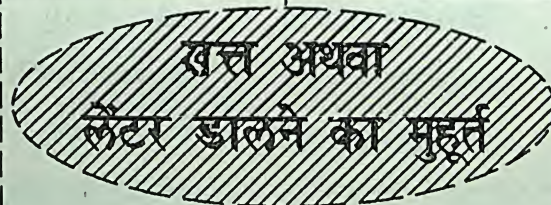 छत्त अथवा
लैंटर डालने का मुहूर्त